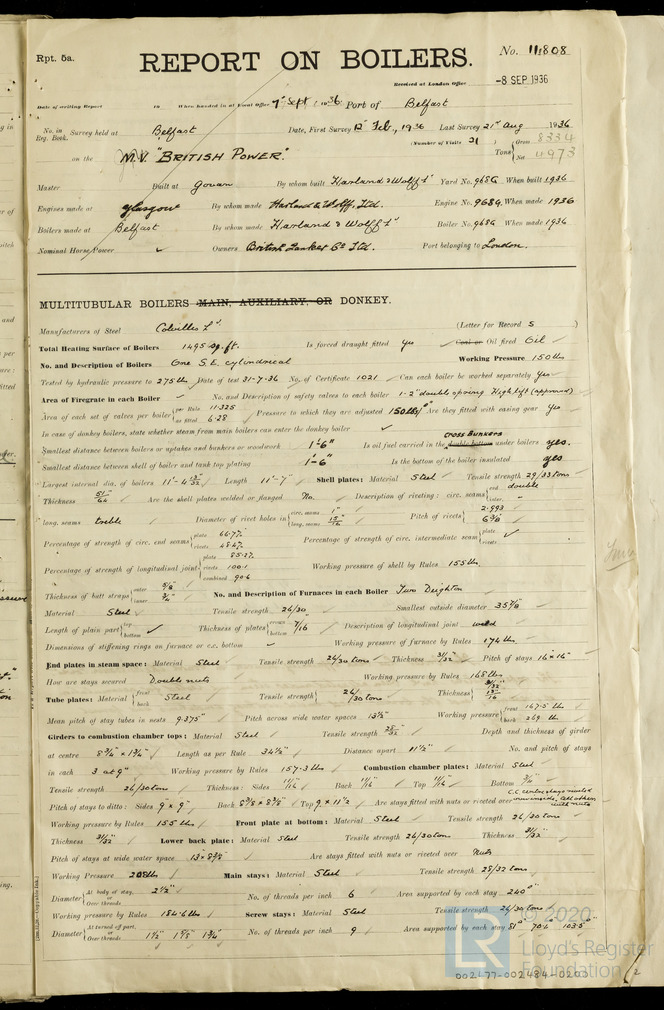 Rpt. 5a.
REPORT ON BOILERS.
No. 11808
Received at London Office -8 SEP. 1936
Date of writing Report 19 When handed in at Local Office 7th Sept. 1936 Port of Belfast
No. in Reg. Book. Survey held at Belfast Date, First Survey 12 Feb., 1936 Last Survey 21st Aug 1936
(Number of Visits 21) Tons Gross 8334 Net 4973
on the M.V. "BRITISH POWER".
Master Built at Govan By whom built Harland & Wolff Ld Yard No. 968G When built 1936
Engines made at Glasgow By whom made Harland & Wolff, Ltd. Engine No. 968G. When made 1936
Boilers made at Belfast By whom made Harland & Wolff Ld Boiler No. 968G When made 1936
Nominal Horse Power Owners British Tanker Co Ltd. Port belonging to London.
MULTITUBULAR BOILERS MAIN, AUXILIARY, OR DONKEY.
Manufacturers of Steel Colvilles Ld (Letter for Record S )
Total Heating Surface of Boilers 1495 sq. ft. Is forced draught fitted yes Coal or Oil fired Oil
No. and Description of Boilers One S.E. cylindrical Working Pressure 150 lbs
Tested by hydraulic pressure to 275 lbs Date of test 31-7-36 No. of Certificate 1021 Can each boiler be worked separately Yes
Area of Firegrate in each Boiler No. and Description of safety valves to each boiler 1-2" double spring High lift (approved)
Area of each set of valves per boiler per Rule 11.325 as fitted 6.28 Pressure to which they are adjusted 150 lbs/□" Are they fitted with easing gear Yes
In case of donkey boilers, state whether steam from main boilers can enter the donkey boiler
Smallest distance between boilers or uptakes and bunkers or woodwork 1'-6" Is oil fuel carried in the double bottom cross bunkers under boilers yes.
Smallest distance between shell of boiler and tank top plating 1'-6" Is the bottom of the boiler insulated yes
Largest internal dia. of boilers 11'-4 13/32" Length 11'-7" Shell plates: Material Steel Tensile strength 29/33 tons
Thickness 51/64" Are the shell plates welded or flanged No. Description of riveting: circ. seams end double inter. "
long. seams treble Diameter of rivet holes in circ. seams 1" long. seams 15/16" Pitch of rivets 2.993 6 3/8"
Percentage of strength of circ. end seams plate 66.7% rivets 48.4% Percentage of strength of circ. intermediate seam plate rivets
Percentage of strength of longitudinal joint plate 85.27. rivets 100.1 combined 90.6 Working pressure of shell by Rules 155 lbs.
Thickness of butt straps outer 5/8" inner 3/4" No. and Description of Furnaces in each Boiler Two Deighton
Material Steel Tensile strength 26/30 Smallest outside diameter 35 7/8"
Length of plain part top bottom Thickness of plates crown bottom 7/16 Description of longitudinal joint weld
Dimensions of stiffening rings on furnace or c.c. bottom Working pressure of furnace by Rules 174 lbs
End plates in steam space: Material Steel Tensile strength 26/30 tons Thickness 31/32" Pitch of stays 16" x 16"
How are stays secured Double nuts Working pressure by Rules 168 lbs
Tube plates: Material front back Steel Tensile strength 26/30 tons Thickness 31/32" 13/16"
Mean pitch of stay tubes in nests 9.375" Pitch across wide water spaces 13 1/2" Working pressure front 167.5 lbs back 269 lbs
Girders to combustion chamber tops: Material Steel Tensile strength 28/32 Depth and thickness of girder
at centre 8 3/4" x 1 3/4" Length as per Rule 34 1/2" Distance apart 11 1/2" No. and pitch of stays
in each 3 at 9" Working pressure by Rules 157.3 lbs Combustion chamber plates: Material Steel
Tensile strength 26/30 tons Thickness: Sides 11/16" Back 11/16" Top 11/16" Bottom 3/4"
Pitch of stays to ditto: Sides 9" x 9" Back 8 5/8" x 8 7/8" Top 9" x 11 1/2" Are stays fitted with nuts or riveted over
Working pressure by Rules 155 lbs Front plate at bottom: Material Steel Tensile strength 26/30 tons
Thickness 31/32" Lower back plate: Material Steel Tensile strength 26/30 tons Thickness 31/32"
Pitch of stays at wide water space 13" x 8 7/8" Are stays fitted with nuts or riveted over Nuts
Working Pressure 208 lbs Main stays: Material Steel Tensile strength 28/32 tons
Diameter At body of stay, or Over threads 2 1/2" No. of threads per inch 6 Area supported by each stay 240□"
Working pressure by Rules 184.6 lbs Screw stays: Material Steel Tensile strength 26/30 tons
Diameter At turned off part, or Over threads 1 1/2" 1 5/8" 1 3/4" No. of threads per inch 9 Area supported by each stay 81□" 70.6 103.5□"
© 2020
LR
Lloyd's Register
Foundation
002477-002484-0203